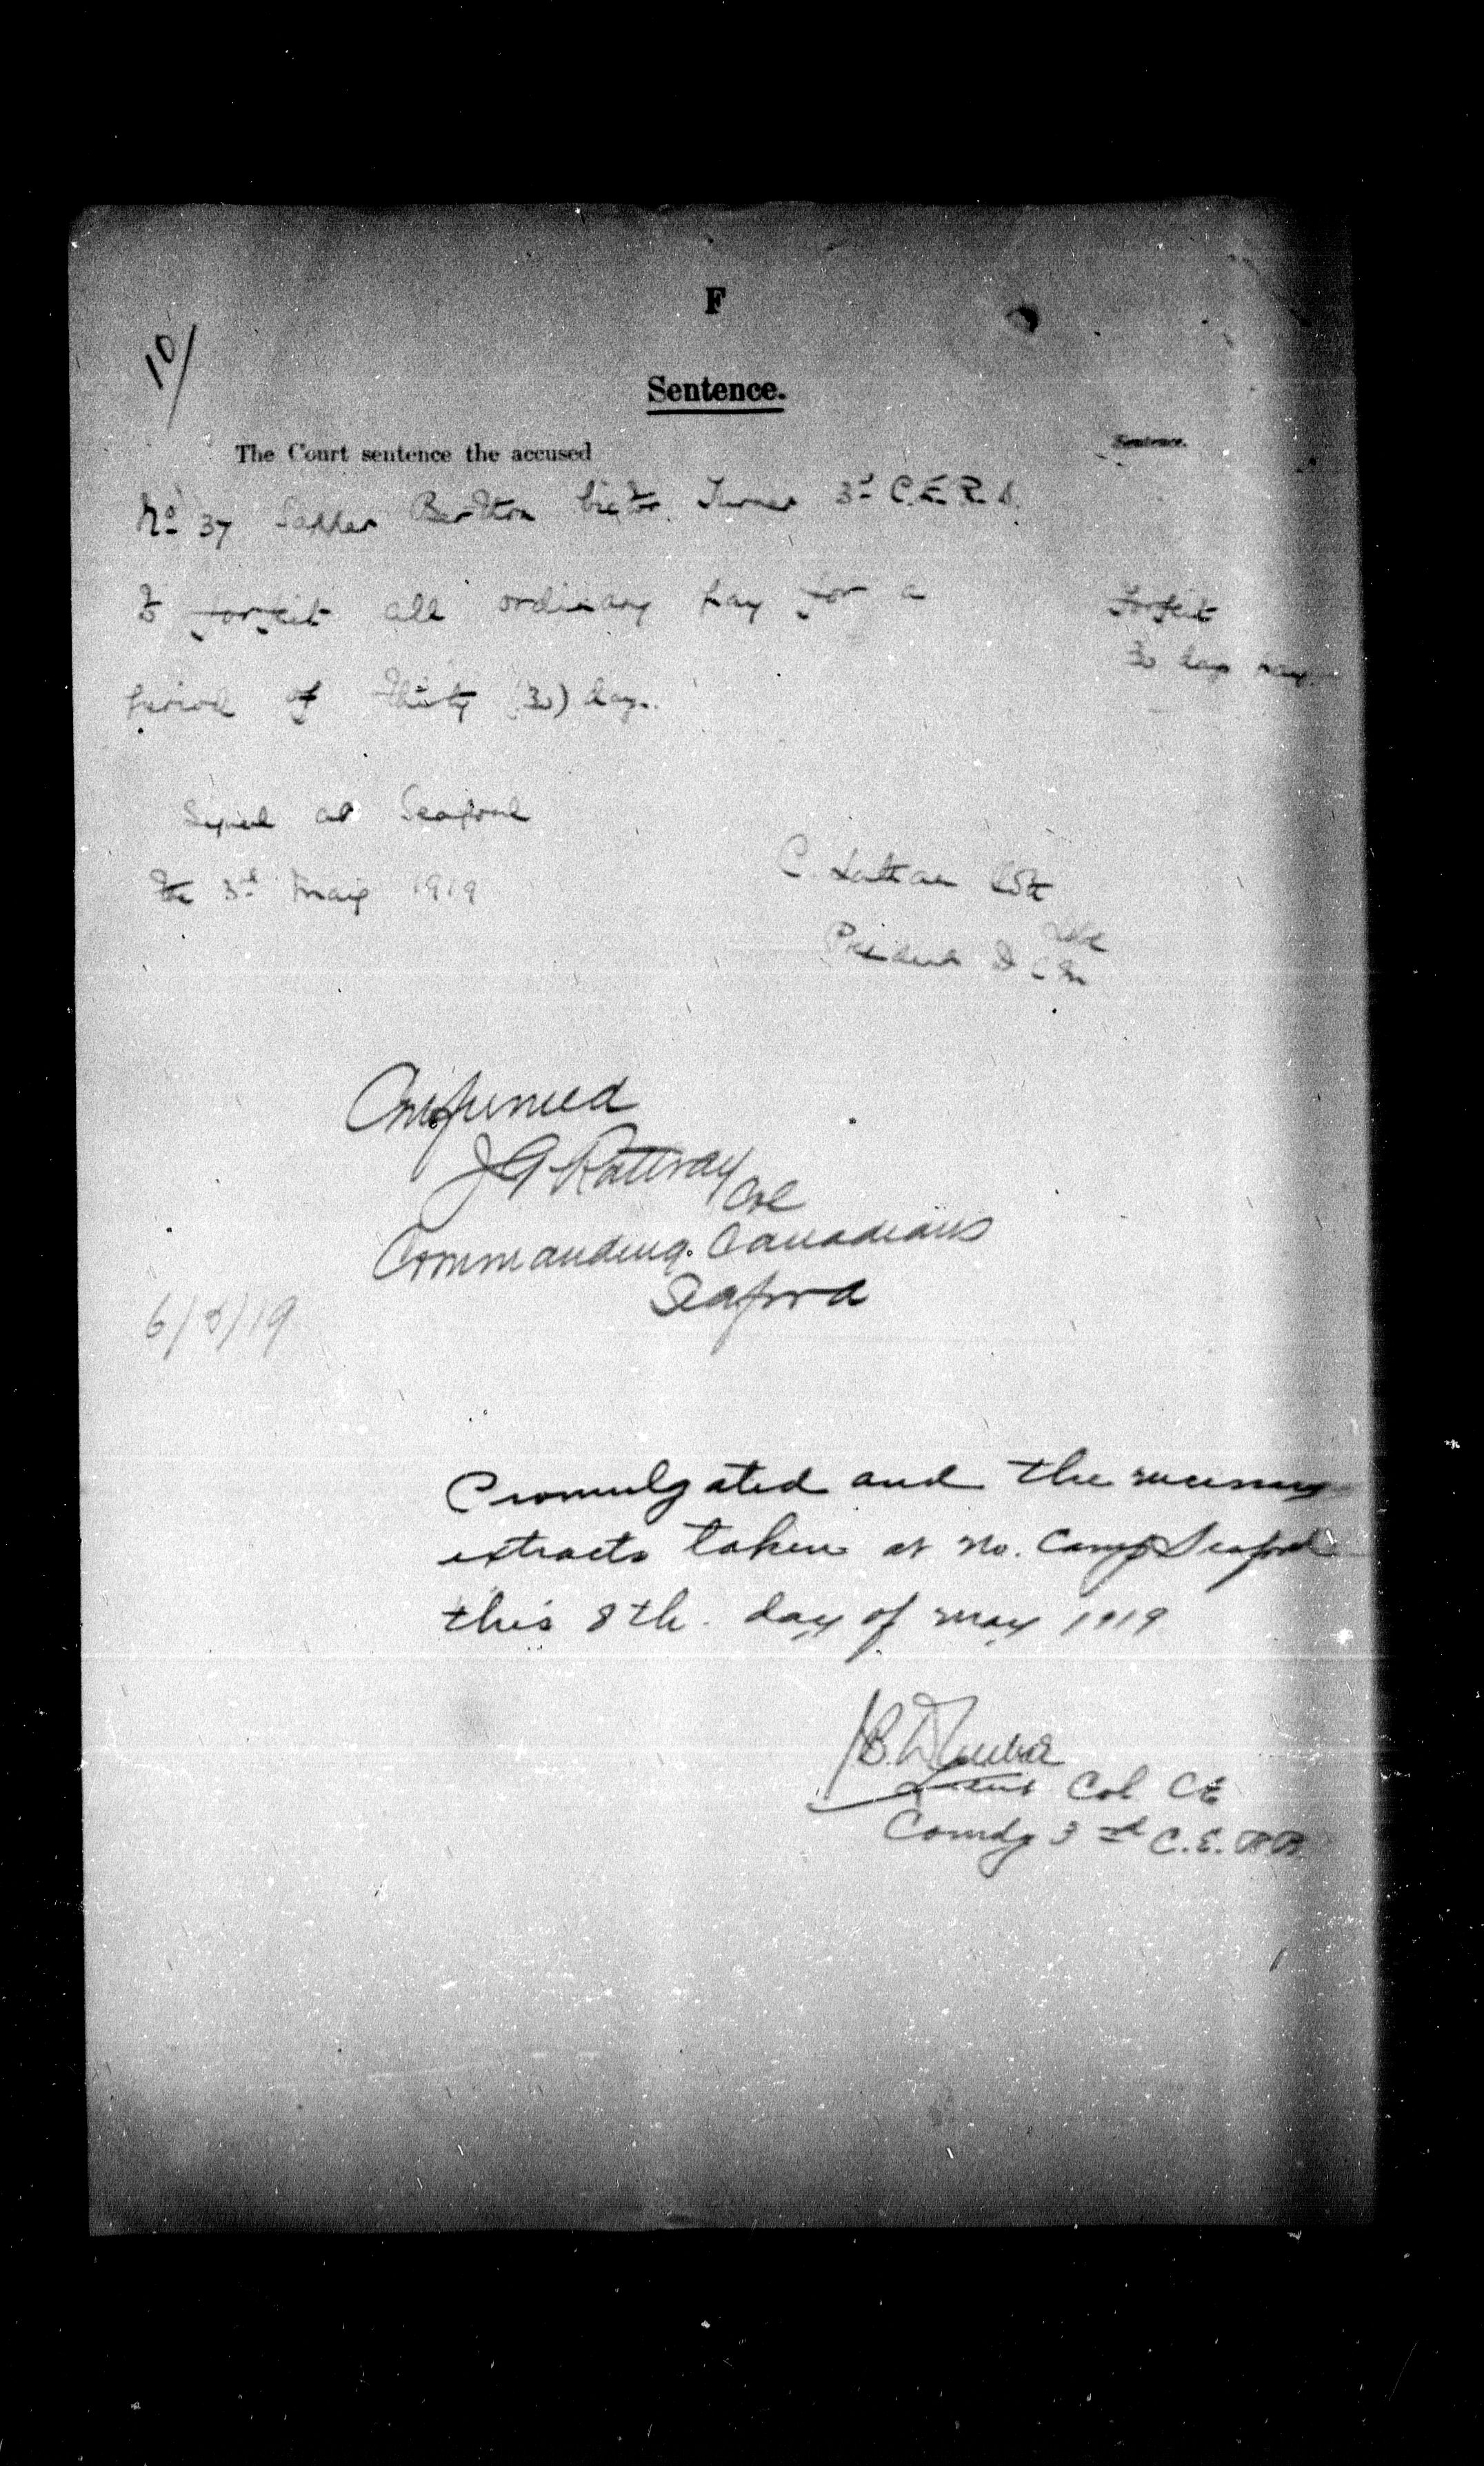 F
10/
Sentence.
The Court sentence the accused
Sentence.
No 37 Sapper Victor Turner 3rd C.E.R.B.
to forfeit all ordinary pay for a
Forfeit
period of thirty (30) days.
30 days pay
Signed at Seaford
the 3rd May 1919
C.
President D C M
Confirmed
J G Rattray Col
Commanding Canadians
Seaford
6/5/19
Promulgated and the necessary
extracts taken at No. Camp Seaford
this 8th. day of May 1919
Lieut Col CE
Comdg 3rd C.E.R.B.